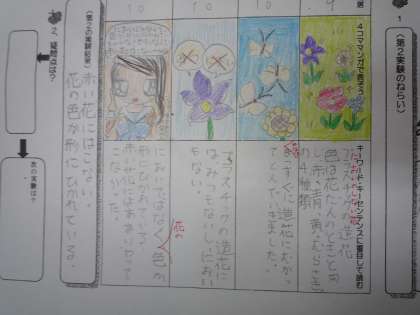 1
〈第2実験のねらい〉
4コママンガで表そう
キーワード・キーセンテンスに着目して読む
9
プラスチックの造花
色は花だんのときと同
じ赤、青、黄、むらさき
の4種類
10
まっすぐに造花にむかっ
てとんでいきました。
10
プラスチックの造花に
はみつもないし、におい
もない。
花の
10
においではなく、色か
形にひかれている。
赤い花にはあまりやって
こなかった。
〈第2の実験結果〉
赤い花にはこない。
花の色か形にひかれている。
2、疑問点は？
次の実験は？